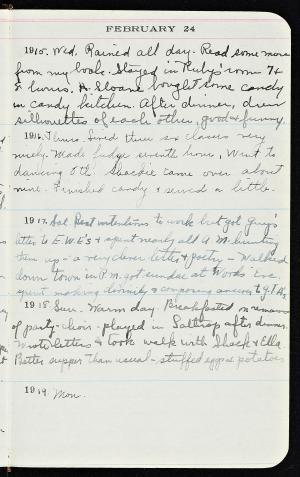 FEBRUARY 24
1915. Wed. Rained all day. Read some more
from my book. Stayed in Ruby's room 7th
8 hours. A. Sloane bought some candy
in candy kitchen. After dinner, drew
silhouettes of each other, good & funny.
1916. Thurs. Lived thru six classes very
nicely. Made fudge seventh hour, Went to
dancing 8th. Shackie came over about
nine. Finished candy & sewed a little.
1917. Sat. Best intentions to work but got
letter to E.W.E's & spent nearly all A.M. hunting
them up - a very clever letter & poetry - Walked
down town in P.M. got sundae at Woods' Eve
spent making divinity & composing answer to
1918. Sun. Warm day. Breakfasted on remains
of party - choir - played in Saltrop after dinner.
Wrote letters & took walk with Shack & Ella.
Better supper than usual - stuffed eggs & potatoes
1919. Mon.